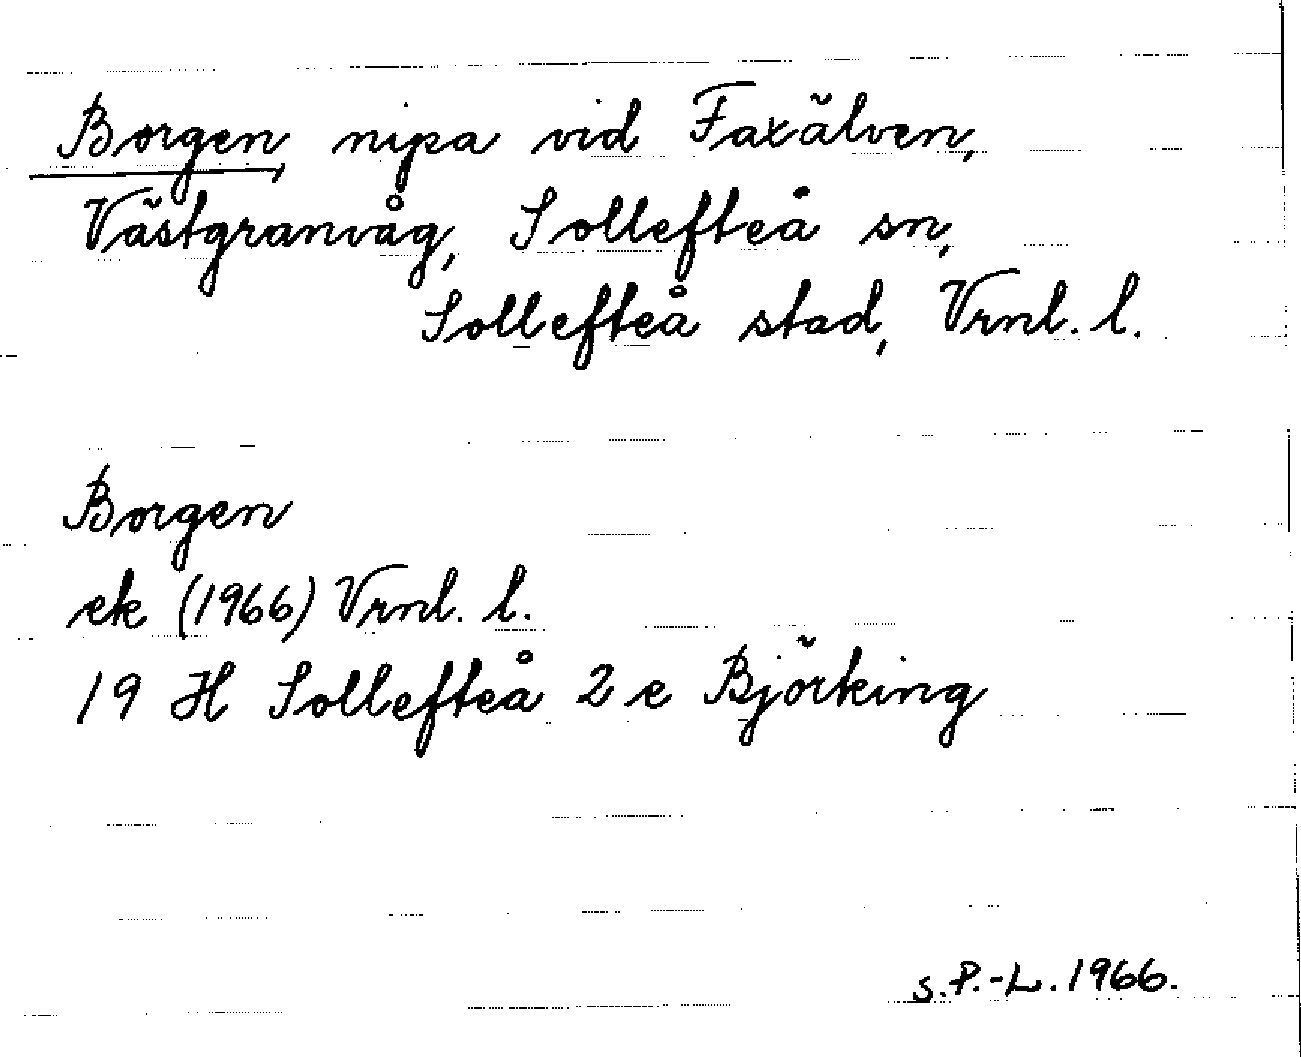 Borgen, nipa vid Faxälven,
Västgranvåg, Sollefteå sn,
Sollefteå stad, Vrnl. l.
Borgen
ek (1966) Vrnl. l.
19 H Sollefteå 2 e Björking
s.P.-L. 1966.